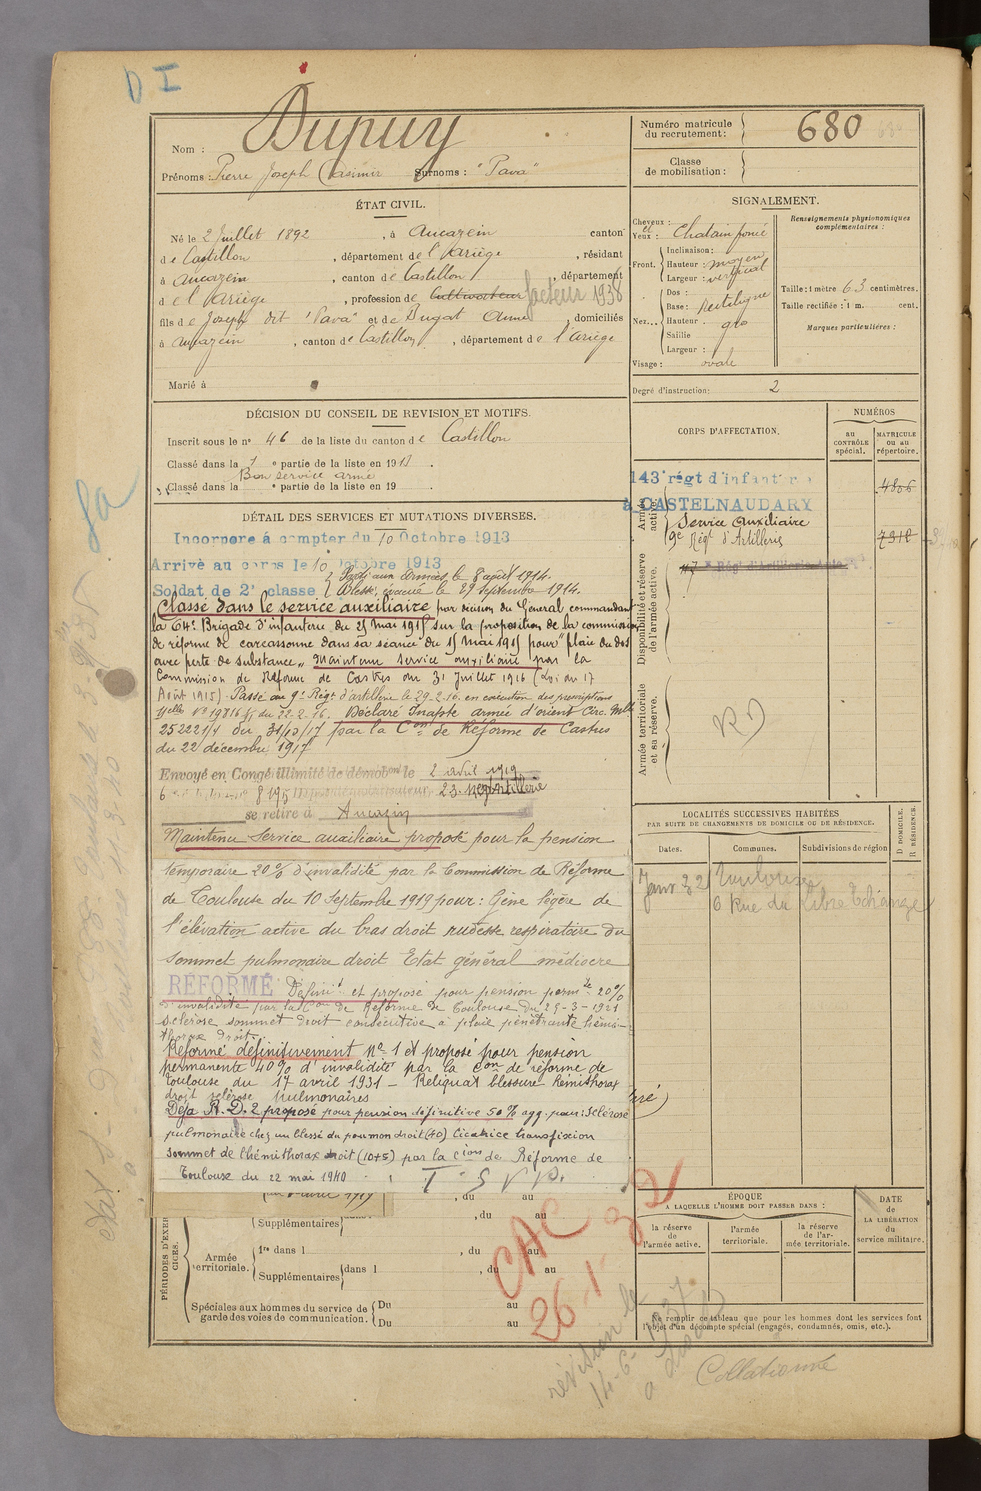 D I
Nom : Dupuy
Prénoms : Pierre Joseph Casimir Surnoms : "Pava"
Numéro matricule du recrutement : 680
Classe de mobilisation :
ÉTAT CIVIL.
Né le 2 Juillet 1892, à Aucazein canton
de Castillon, département de l'Ariège, résidant
à Aucazein, canton de Castillon, département
de l'Ariège, profession de Cultivateur facteur 1938
fils de Joseph dit "Pava" et de Dugat Anne, domiciliés
à Aucazein, canton de Castillon, département de l'Ariège
Marié à
SIGNALEMENT.
Cheveux : et Yeux : Chatain foncé
Front. Inclinaison :
Hauteur : moyen
Largeur : vertical
Nez... Dos :
Base : Rectiligne
Hauteur : gro
Saillie
Largeur :
Visage : ovale
Renseignements physionomiques complémentaires :
Taille : 1 mètre 63 centimètres.
Taille rectifiée : 1 m. cent.
Marques particulières :
Degré d'instruction : 2
DÉCISION DU CONSEIL DE REVISION ET MOTIFS.
Inscrit sous le n° 46 de la liste du canton de Castillon
Classé dans la 1e partie de la liste en 1913.
Bon service armé
Classé dans la e partie de la liste en 19 .
DÉTAIL DES SERVICES ET MUTATIONS DIVERSES.
Incorporé à compter du 10 Octobre 1913
Arrivé au corps le 10 Octobre 1913
Parti aux Armées le 8 août 1914.
Soldat de 2e classe Blessé, évacué le 29 septembre 1914.
Classé dans le service auxiliaire par décision du Général commandant
la 64e Brigade d'infanterie du 25 mai 1915 sur la proposition de la commission
de réforme de carcassonne dans sa séance du 15 mai 1915 pour "plaie du dos
avec perte de substance". Maintenu service auxiliaire par la
Commission de Réforme de Castres du 31 Juillet 1916 (Loi du 17
Août 1915). Passé au 9e Régt d'artillerie le 29.2.16. en exécution des prescriptions
du 22.2.16. Déclaré Inapte armée d'orient Circ. Mlle
252221/1 du 31/10/17 par la Con de Réforme de Castres
du 22 décembre 1917
Envoyé en Congé illimité de démobon le 2 avril 1919
23. Regt Artillerie
se retire à Aucazein
Maintenu Service auxiliaire proposé pour la pension
temporaire 20% d'invalidité par la Commission de Réforme
de Toulouse du 10 Septembre 1919 pour : Gêne légère de
l'élévation active du bras droit rudesse respiratoire du
sommet pulmonaire droit Etat général médiocre
RÉFORMÉ Définit et proposé pour pension permte 20%
d'invalidité par la Con de Réforme de Toulouse du 29-3-1921
Sclérose sommet droit consécutive à plaie pénétrante hémi-
thorax droit
Réformé définitivement n° 1 et proposé pour pension
permanente 40% d'invalidité par la Con de réforme de
Toulouse du 17 avril 1931 - Reliquat blessure - hémithorax
droit sclérose pulmonaires
Déjà R.D. 2 proposé pour pension définitive 50% agg. pour : Sclérose
pulmonaire chez un blessé du poumon droit (40) Cicatrice transfixion
sommet de l'hémithorax droit (10+5) par la Cion de Réforme de
Toulouse du 22 mai 1940
T S V P.
CORPS D'AFFECTATION.
NUMÉROS
AU CONTRÔLE spécial.
MATRICULE OU AU répertoire.
Armée active.
143e régt d'infanterie
à CASTELNAUDARY
4806
Service Auxiliaire
9e Régt d'Artillerie
7312
Disponibilité et réserve de l'armée active.
Armée territoriale et sa réserve.
RD
LOCALITÉS SUCCESSIVES HABITÉES
PAR SUITE DE CHANGEMENTS DE DOMICILE OU DE RÉSIDENCE.
Dates. Communes. Subdivisions de région
D DOMICILE. R RÉSIDENCE.
Janv 32 Toulouse
6 Rue du Libre Echange
ÉPOQUE
A LAQUELLE L'HOMME DOIT PASSER DANS :
la réserve de l'armée active.
l'armée territoriale.
la réserve de l'armée territoriale.
DATE de LA LIBÉRATION du service militaire.
Ne remplir ce tableau que pour les hommes dont les services font
l'objet d'un décompte spécial (engagés, condamnés, omis, etc.).
PÉRIODES D'EXERCICES.
Supplémentaires , du au
, du au
Armée territoriale. 1re dans l , du au
Supplémentaires dans l , du au
Spéciales aux hommes du service de garde des voies de communication. Du au
Du au
CAC
26-1-32
révision le
14-6-1937
Collationné